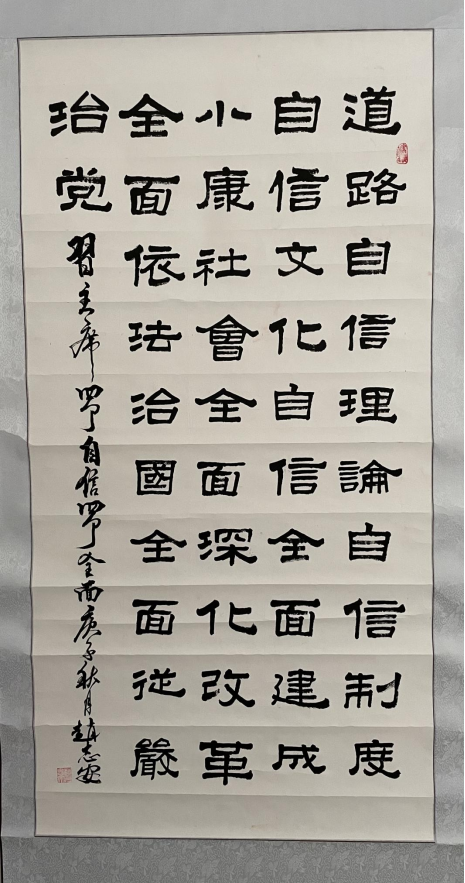 道路自信理論自信制度
自信文化自信全面建成
小康社會全面深化改革
全面依法治國全面從嚴
治党
習主席四个自信四个全面庚子秋月趙志安